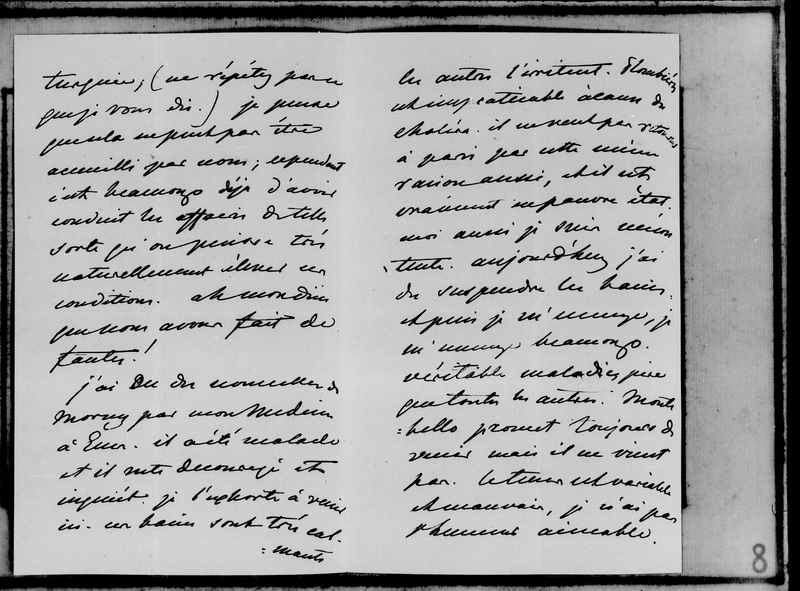 turquie, (ne répétez pas ce
que je vous dis.) je pense
que cela ne peut pas être
accueilli par nous; cependant
c'est beaucoup déjà d'avoir
conduit les affaires de telle
sorte qu'on puisse très
naturellement élever ces
conditions. ah mon dieu
que nous avons fait de
fautes!
j'ai eu des nouvelles de
Morny par mon Medecin
à Ems. il a été malade
et il reste decouragé et
inquiet. je l'exhorte à venir
ici. ces bains sont très cal-
=mants
les autres l'irritent. Plombières
est inexécutable à cause du
choléra. il ne veut pas retourner
à paris par cette même
raison aussi, et il est
vraiment en pauvre état.
moi aussi je suis mécon
tente. aujourd'huy j'ai
du suspendre les bains,
et puis je m'ennuye, je
m'ennuye beaucoup.
véritable maladie, pire
que toutes les autres. Monte
=bello promet toujours de
venir mais il ne vient
pas. le tems est variable
et mauvais, je n'ai pas
l'humeur aimable.
8